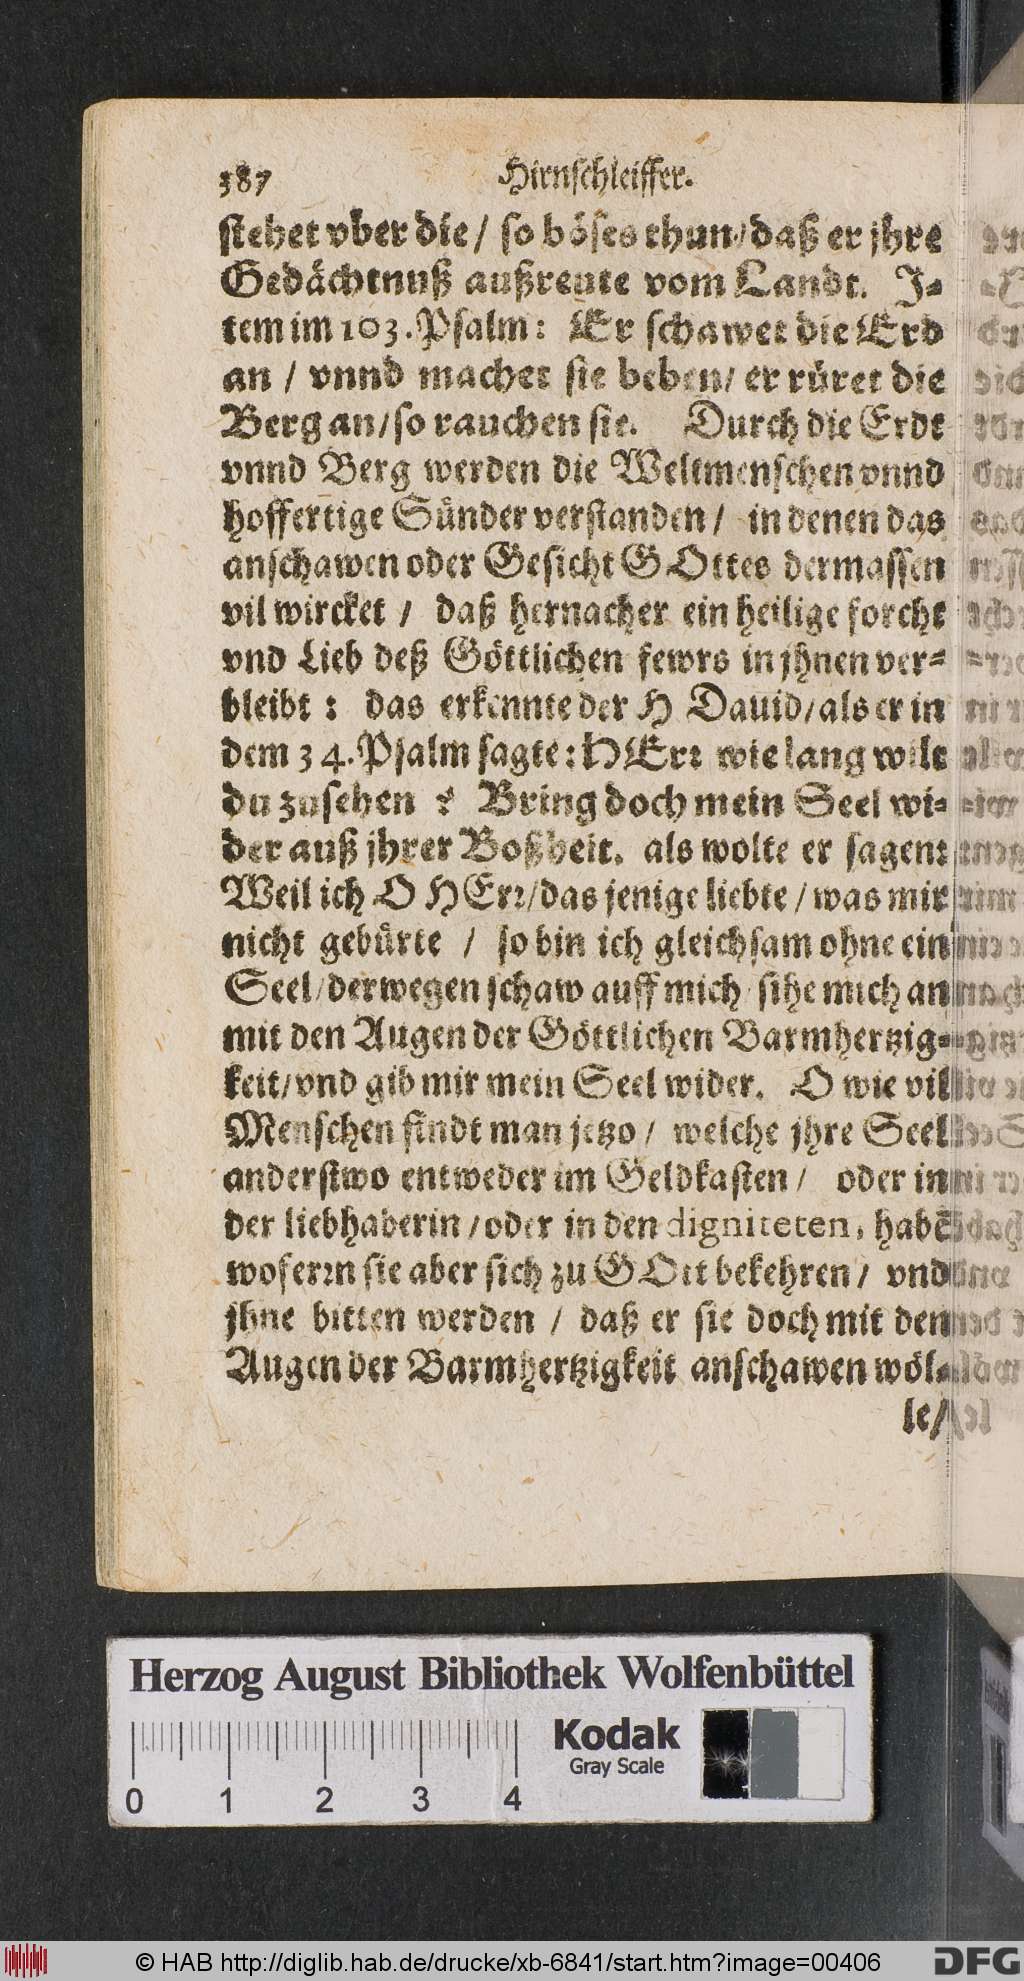 387 Hirnschleiffer.
stehet vber die / so böses thun / daß er jhre
Gedächtnuß außreute vom Landt. I-
tem im 103. Psalm: Er schawet die Erd
an / vnnd machet sie beben / er rüret die
Berg an / so rauchen sie. Durch die Erdt
vnnd Berg werden die Weltmenschen vnnd
hoffertige Sünder verstanden / in denen das
anschawen oder Gesicht GOttes dermassen
vil wircket / daß hernacher ein heilige forcht
vnd Lieb deß Göttlichen fewrs in jhnen ver-
bleibt : das erkennte der H Dauid / als er in
dem 34. Psalm sagte : HErr wie lang wilt
du zusehen ? Bring doch mein Seel wi-
der auß jhrer Boßheit. als wolte er sagen:
Weil ich O HErr / das jenige liebte / was mir
nicht gebürte / so bin ich gleichsam ohne ein
Seel / derwegen schaw auff mich / sihe mich an
mit den Augen der Göttlichen Barmhertzig-
keit / vnd gib mir mein Seel wider. O wie vil
Menschen findt man jetzo / welche jhre Seel
anderstwo entweder im Geldkasten / oder in
der liebhaberin / oder in den digniteten, habē
woferrn sie aber sich zu GOtt bekehren / vnd
jhne bitten werden / daß er sie doch mit den
Augen der Barmhertzigkeit anschawen wöl-
le /
Herzog August Bibliothek Wolfenbüttel
Kodak
Gray Scale
0 1 2 3 4
© HAB http://diglib.hab.de/drucke/xb-6841/start.htm?image=00406
DFG